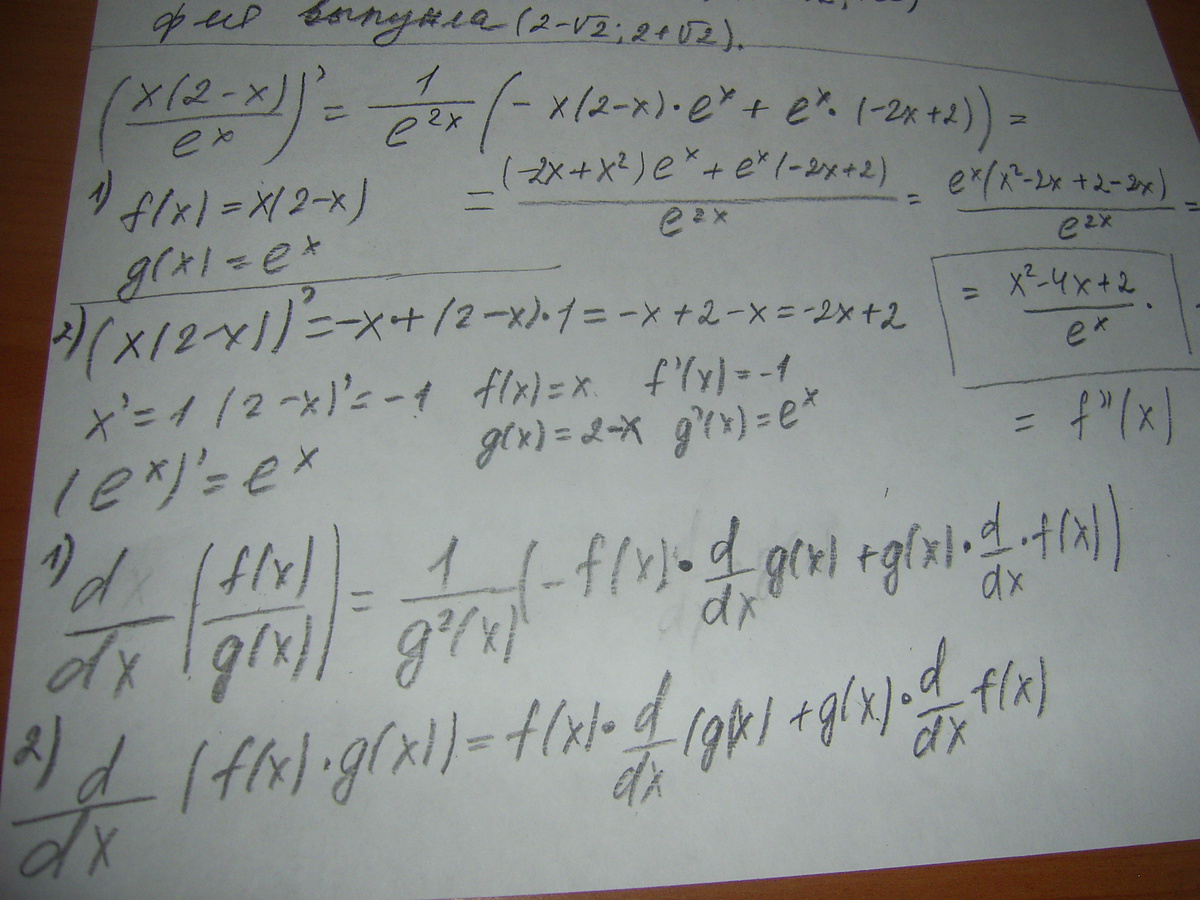 выпукла (2-√2; 2+√2).
(x(2-x)/e^x)' = 1/e^(2x) (- x(2-x)·e^x + e^x·(-2x+2)) =
= ((-2x+x²)e^x + e^x(-2x+2))/e^(2x) = e^x(x²-2x+2-2x)/e^(2x) =
1) f(x) = x(2-x)
g(x) = e^x
= (x²-4x+2)/e^x.
2) (x(2-x))' = -x·+(2-x)·1 = -x+2-x = -2x+2
x' = 1 (2-x)' = -1 f(x) = x. f'(x) = -1
g(x) = 2-x g'(x) = e^x
= f''(x)
(e^x)' = e^x
1) d/dx (f(x)/g(x)) = 1/g²(x) (-f(x)·d/dx g(x) + g(x)·d/dx·f(x))
2) d/dx (f(x)·g(x)) = f(x)·d/dx (g(x) + g(x)·d/dx f(x)